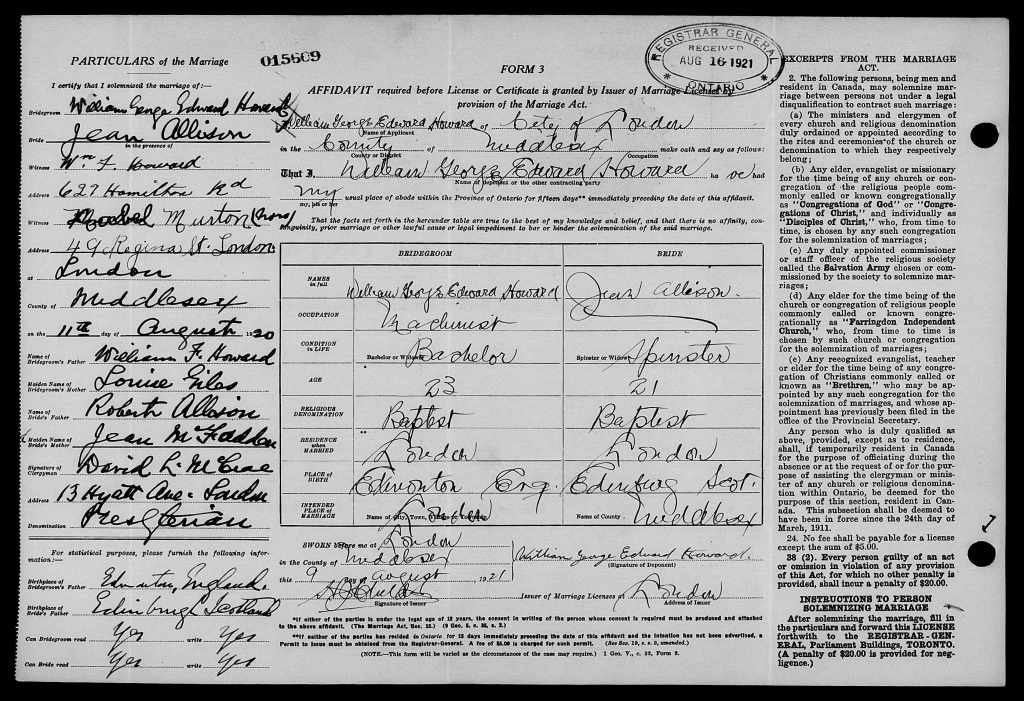 PARTICULARS of the Marriage
I certify that I solemnized the marriage of:—
Bridegroom William George Edward Howard
Bride Jean Allison
in the presence of
Witness Wm F. Howard
Address 627 Hamilton Rd
Witness Murton (Mrs)
Address 49 Regina St. London
at London
County of Middlesex
on the 11th day of August 1920
Name of Bridegroom's Father William F. Howard
Maiden Name of Bridegroom's Mother Louise Giles
Name of Bride's Father Robert Allison
Maiden Name of Bride's Mother Jean McFadden
Signature of Clergyman David L. McCrae
Address 13 Hyatt Ave - London
Denomination Presbterian
For statistical purposes, please furnish the following information:—
Birthplace of Bridegroom's Father England.
Birthplace of Bride's Father Edinburgh Scotland
Can Bridegroom read Yes write Yes
Can Bride read Yes write Yes
015609
FORM 3
REGISTRAR GENERAL
RECEIVED
AUG 16 1921
ONTARIO
AFFIDAVIT required before License or Certificate is granted by Issuer of Marriage Licenses by
provision of the Marriage Act.
William George Edward Howard of City of London
Name of Applicant
in the County of Middlesex make oath and say as follows:
County or District Occupation
That I, William George Edward Howard ha ve had
Name of Deponent or the other contracting party
my usual place of abode within the Province of Ontario for fifteen days** immediately preceding the date of this affidavit.
my, his or her
That the facts set forth in the hereunder table are true to the best of my knowledge and belief, and that there is no affinity, consanguinity, prior marriage or other lawful cause or legal impediment to bar or hinder the solemnization of the said marriage.
BRIDEGROOM BRIDE
NAMES in full William George Edward Howard Jean Allison.
OCCUPATION Machinist
CONDITION in LIFE Bachelor or Widower Bachelor Spinster or Widow Spinster
AGE 23 21
RELIGIOUS DENOMINATION Baptist Baptist
RESIDENCE when MARRIED London London
PLACE OF BIRTH Edmonton Eng. Edinburg Scot.
INTENDED PLACE OF MARRIAGE Name of City, Town, London Name of County Middlesex
SWORN before me at London
in the County of Middlesex William George Edward Howard.
(Signature of Deponent)
this 9 day of August 1921
Signature of Issuer
Issuer of Marriage Licenses at London
Address of Issuer
*If either of the parties is under the legal age of 18 years, the consent in writing of the person whose consent is required must be produced and attached to the above affidavit. (The Marriage Act, Sec. 15.) (9 Geo. 5, c. 35, s. 2.)
**If neither of the parties has resided in Ontario for 15 days immediately preceding the date of this affidavit and the intention has not been advertised, a Permit to issue must be obtained from the Registrar-General. A fee of $5.00 is charged for such permit. (See Sec. 19, s. 3, amended.)
(NOTE.—This form will be varied as the circumstances of the case may require.) 1 Geo. V., c. 32, Form 3.
EXCERPTS FROM THE MARRIAGE
ACT.
2. The following persons, being men and
resident in Canada, may solemnize marriage between persons not under a legal
disqualification to contract such marriage:
(a) The ministers and clergymen of
every church and religious denomination
duly ordained or appointed according to
the rites and ceremonies of the church or
denomination to which they respectively
belong;
(b) Any elder, evangelist or missionary
for the time being of any church or congregation of the religious people commonly called or known congregationally
as "Congregations of God" or "Congregations of Christ," and individually as
"Disciples of Christ," who, from time to
time, is chosen by any such congregation
for the solemnization of marriages;
(c) Any duly appointed commissioner
or staff officer of the religious society
called the Salvation Army chosen or commissioned by the society to solemnize marriages;
(d) Any elder for the time being of the
church or congregation of religious people
commonly called or known congregationally as "Farringdon Independent
Church," who, from time to time is
chosen by such church or congregation
for the solemnization of marriages;
(e) Any recognized evangelist, teacher
or elder for the time being of any congregation of Christians commonly called or
known as "Brethren," who may be appointed by any such congregation for the
solemnization of marriages, and whose appointment has previously been filed in the
office of the Provincial Secretary.
Any person who is duly qualified as
above, provided, except as to residence,
shall, if temporarily resident in Canada
for the purpose of officiating during the
absence or at the request of or for the purpose of assisting the clergyman or minister of any church or religious denomination within Ontario, be deemed for the
purpose of this section, resident in Canada. This subsection shall be deemed to
have been in force since the 24th day of
March, 1911.
24. No fee shall be payable for a license
except the sum of $5.00.
38 (2). Every person guilty of an act
or omission in violation of any provision
of this Act, for which no other penalty is
provided, shall incur a penalty of $20.00.
INSTRUCTIONS TO PERSON
SOLEMNIZING MARRIAGE
After solemnizing the marriage, fill in
the particulars and forward this LICENSE
forthwith to the REGISTRAR-GENERAL, Parliament Buildings, TORONTO.
(A penalty of $20.00 is provided for negligence.)